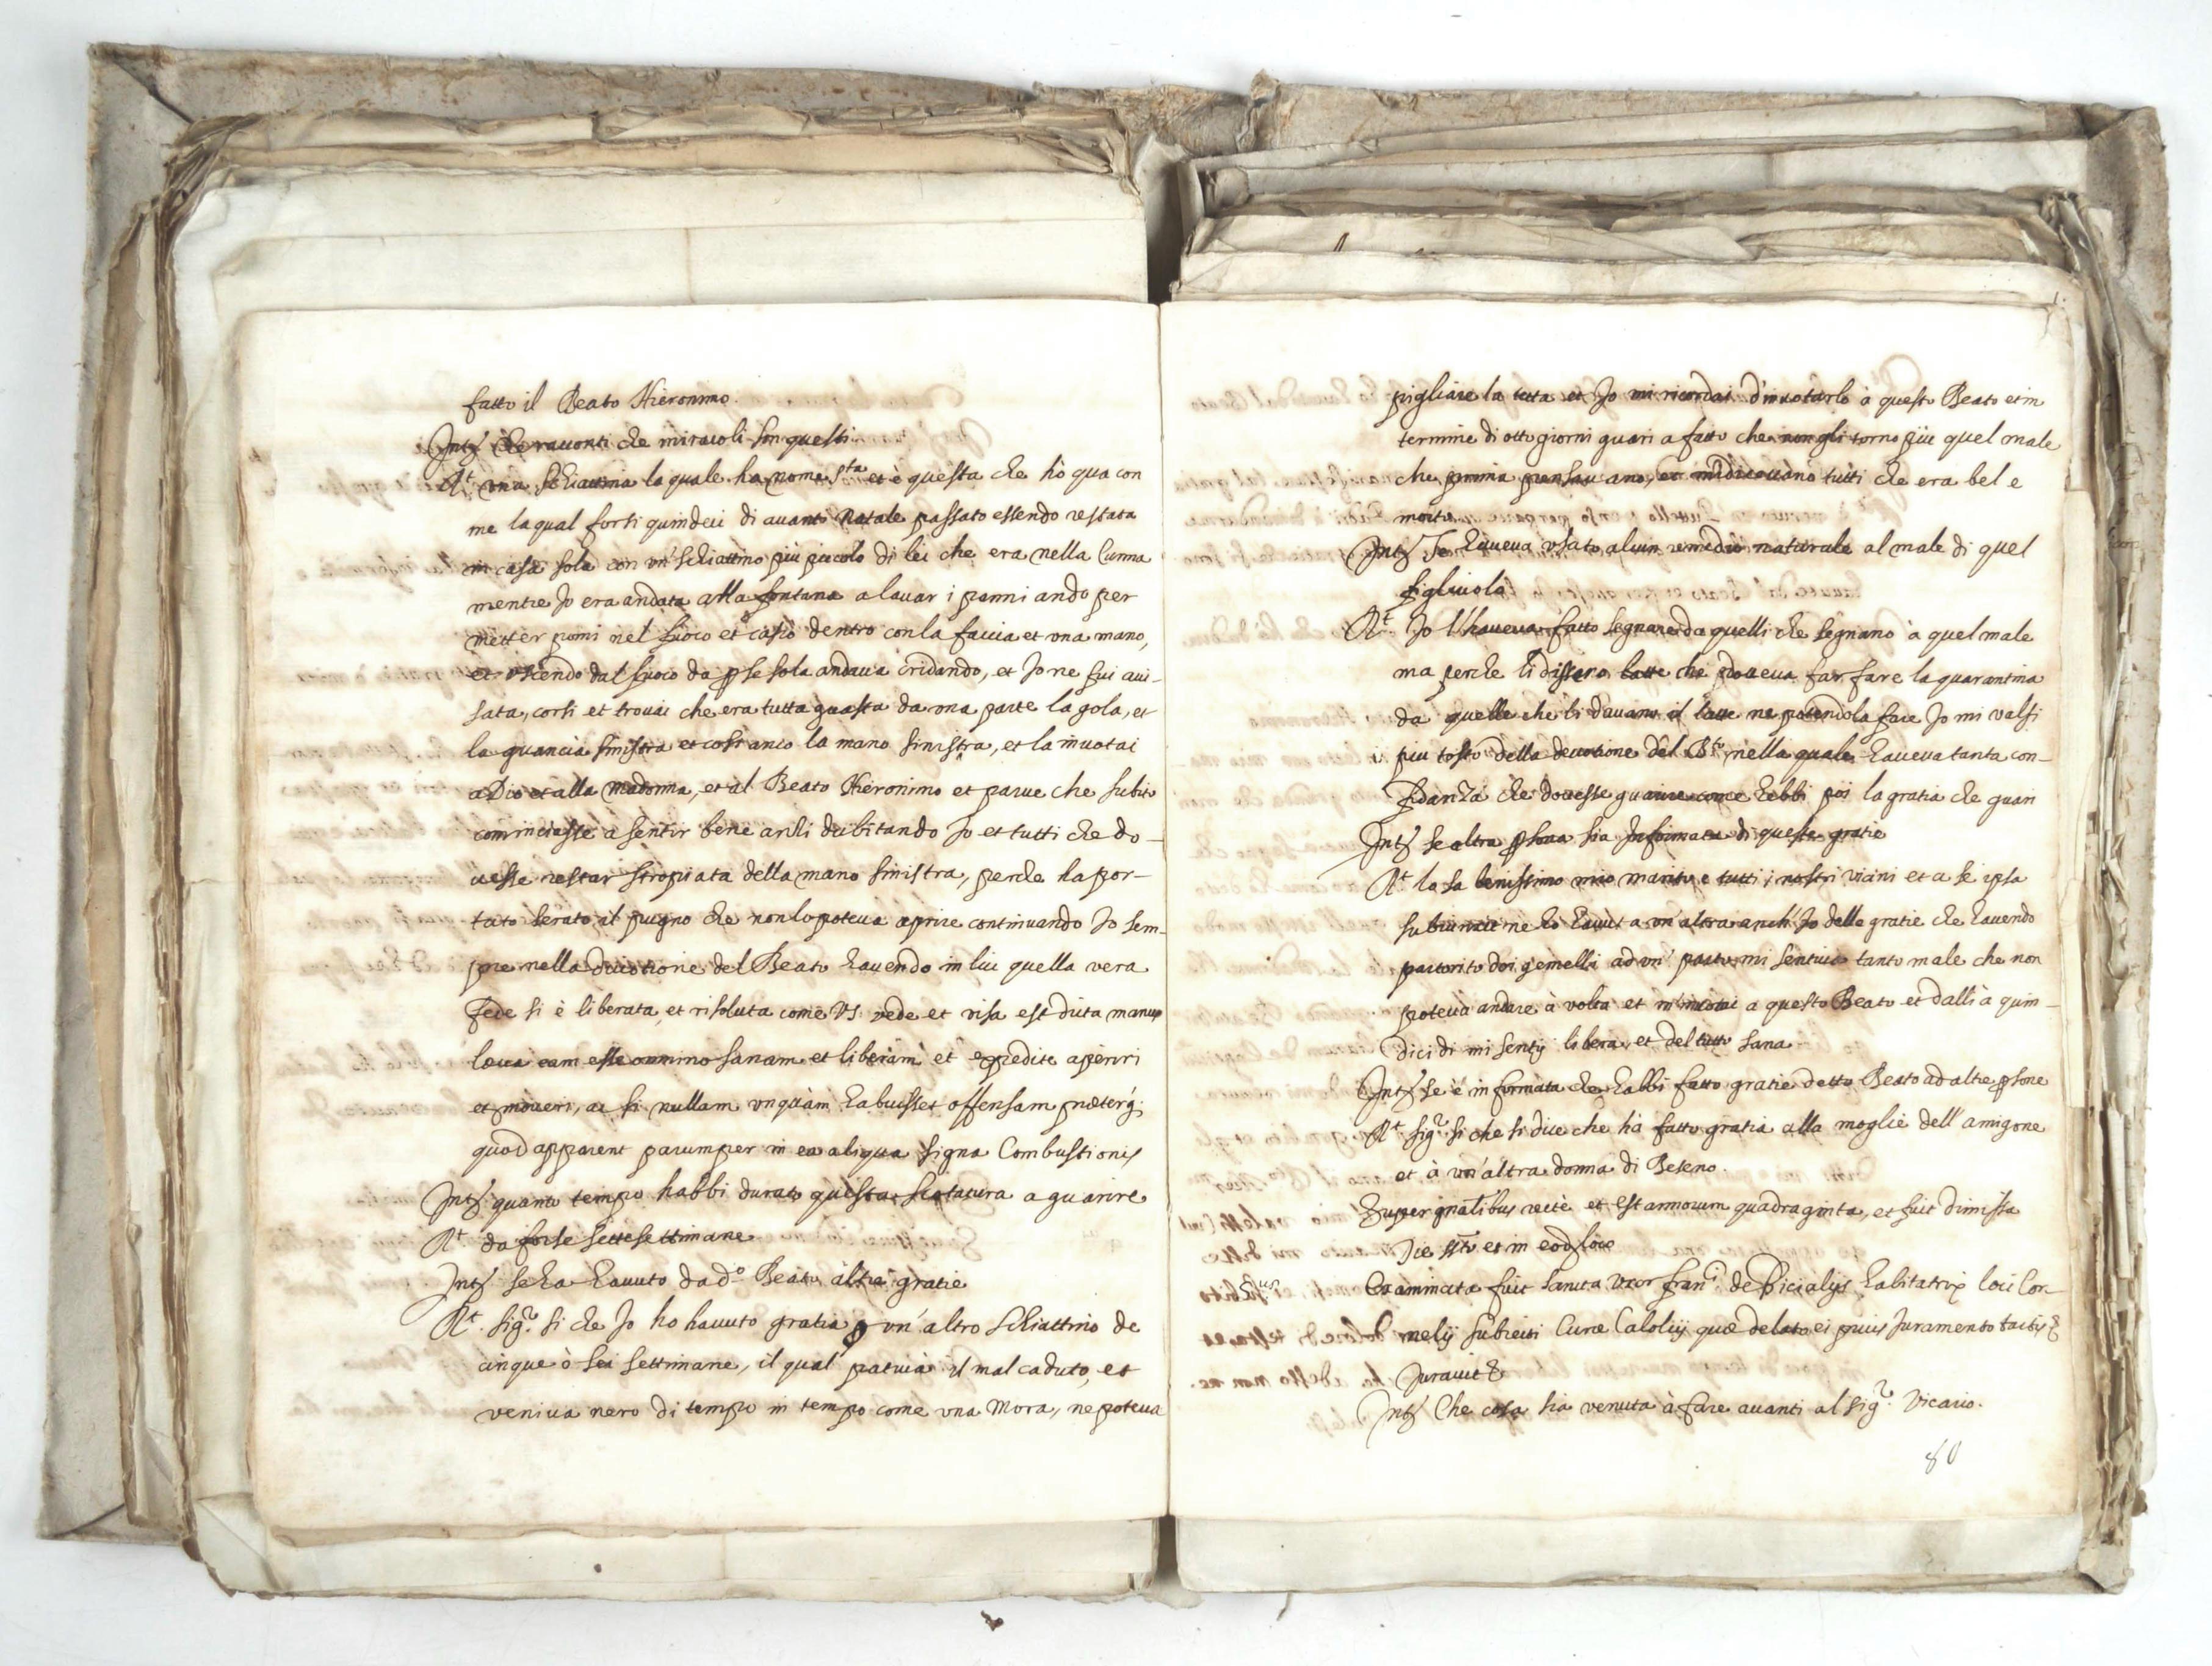 fatto il Beato Hieronimo.
Intʒ che racconti che miracoli son questi
Rt una schiattina la quale ha nome Sta et è questa che hò qua con
me la qual forsi quindeci di avanti Natale passato essendo restata
in casa sola con un' schiattino più piccolo di lei che era nella Cunna
mentre Jo era andata alla fontana a lavar i panni andò per
metter pomi nel fuoco et cascò dentro con la faccia et una mano,
et uscendo dal fuoco da p se sola andava cridando, et Jo ne fui avi-
sata, corsi et trovai che era tutta guasta da una parte la gola, et
la guancia sinistra et cosi anco la mano sinistra, et la invotai
a Dio et alla Madonna, et al Beato Hieronimo et parve che subito
cominciasse a sentir bene anzi dubitando Jo et tutti che do-
vesse restar stropiata della mano sinistra, perche ha por-
tato serato il pugno che non lo poteva aprire continuando Jo sem-
pre nella divotione del Beato havendo in lui quella vera
fede si è liberata, et risoluta come VS. vede et visa est dicta manus
læva eam esse omnino sanam et liberam et expedite aperiri
et moveri, ac si nullam unquam habuisset offensam præterq;
quod apparent parumper in ea aliqua signa Combustionis
Intʒ quanto tempo habbi durato questa scotatura a guarire
Rt da forse sette settimane
Intʒ se ha havuto da do Beato altre gratie
Rt. Sigr si che Jo ho havuto gratia p un' altro schiattino de
cinque ò sei settimane, il qual pativa il mal caduto, et
veniva nero di tempo in tempo come una Mora, ne poteva
pigliare la tetta et Jo mi ricordai d'invotarlo à questo Beato et in
termine di otto giorni guarì a fatto che non gli torno più quel male
che prima pensavano, et mi dicevano tutti che era bel e
morto
Intʒ Se haveva usato alcun remedio naturale al male di quel
figliuolo
Rt. Jo l'haveva fatto segnare da quelli che segnano à quel male
ma perche li dissero che doveva far fare la quarantina
da quelle che li davano il latte ne potendola fare Jo mi valsi
più tosto della devotione del Bto nella quale haveva tanta con-
fidanza che dovesse guarire come hebbi poi la gratia che guarì
Intʒ se altra psona sia informata di queste gratie
Rt lo sa benissimo mio marito e tutti i nostri vicini et a se ipsa
subiunxit ne hò havuta un' altra anch' Jo delle gratie che havendo
partorito doi gemelli ad un' parto mi sentivo tanto male che non
poteva andare à volta et m'invotai a questo Beato et dallì à quin-
dici di mi sentij libera, et del tutto sana
Intʒ se è informata che habbi fatto gratie detto Beato ad altre psone
Rt Sigr si che si dice che hà fatto gratia alla moglie dell' amigone
et à un' altra donna di Beseno.
Super gnalibus recte et est annorum quadraginta, et fuit dimissa
Die sto et in eod loco
Examinata fuit Sancta uxor Franci de Bicialijs habitatrix loci Cor-
nelij subiecti Curæ Calolij quæ delato ei prius Juramento tactis &
Juravit &
Intʒ Che cosa sia venuta à fare avanti al Sigr Vicario.
80